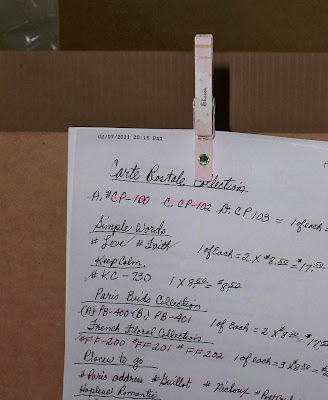 Sharon
02/07/2011 20:15 FAX
Carte Postale Collection
A. #CP-100 C. CP-102 D. CP103 = 1 of each =
Simple Words
# Love # Faith 1 of Each = 2 X $8.50 = $17.00
Keep Calm
# KC-730 1 X 8.50 = $8.50
Paris Birds Collection
(A) PB-400 (B.) PB-401 1 of each = 2 x $8.50 = $17
French Floral Collection
# FF-200 #FF201 # FF202 1 of each = 3 X $8.50 =
Places to go
# Paris address # Guillot # Nichoux # Poetry
Hopeless Romantic